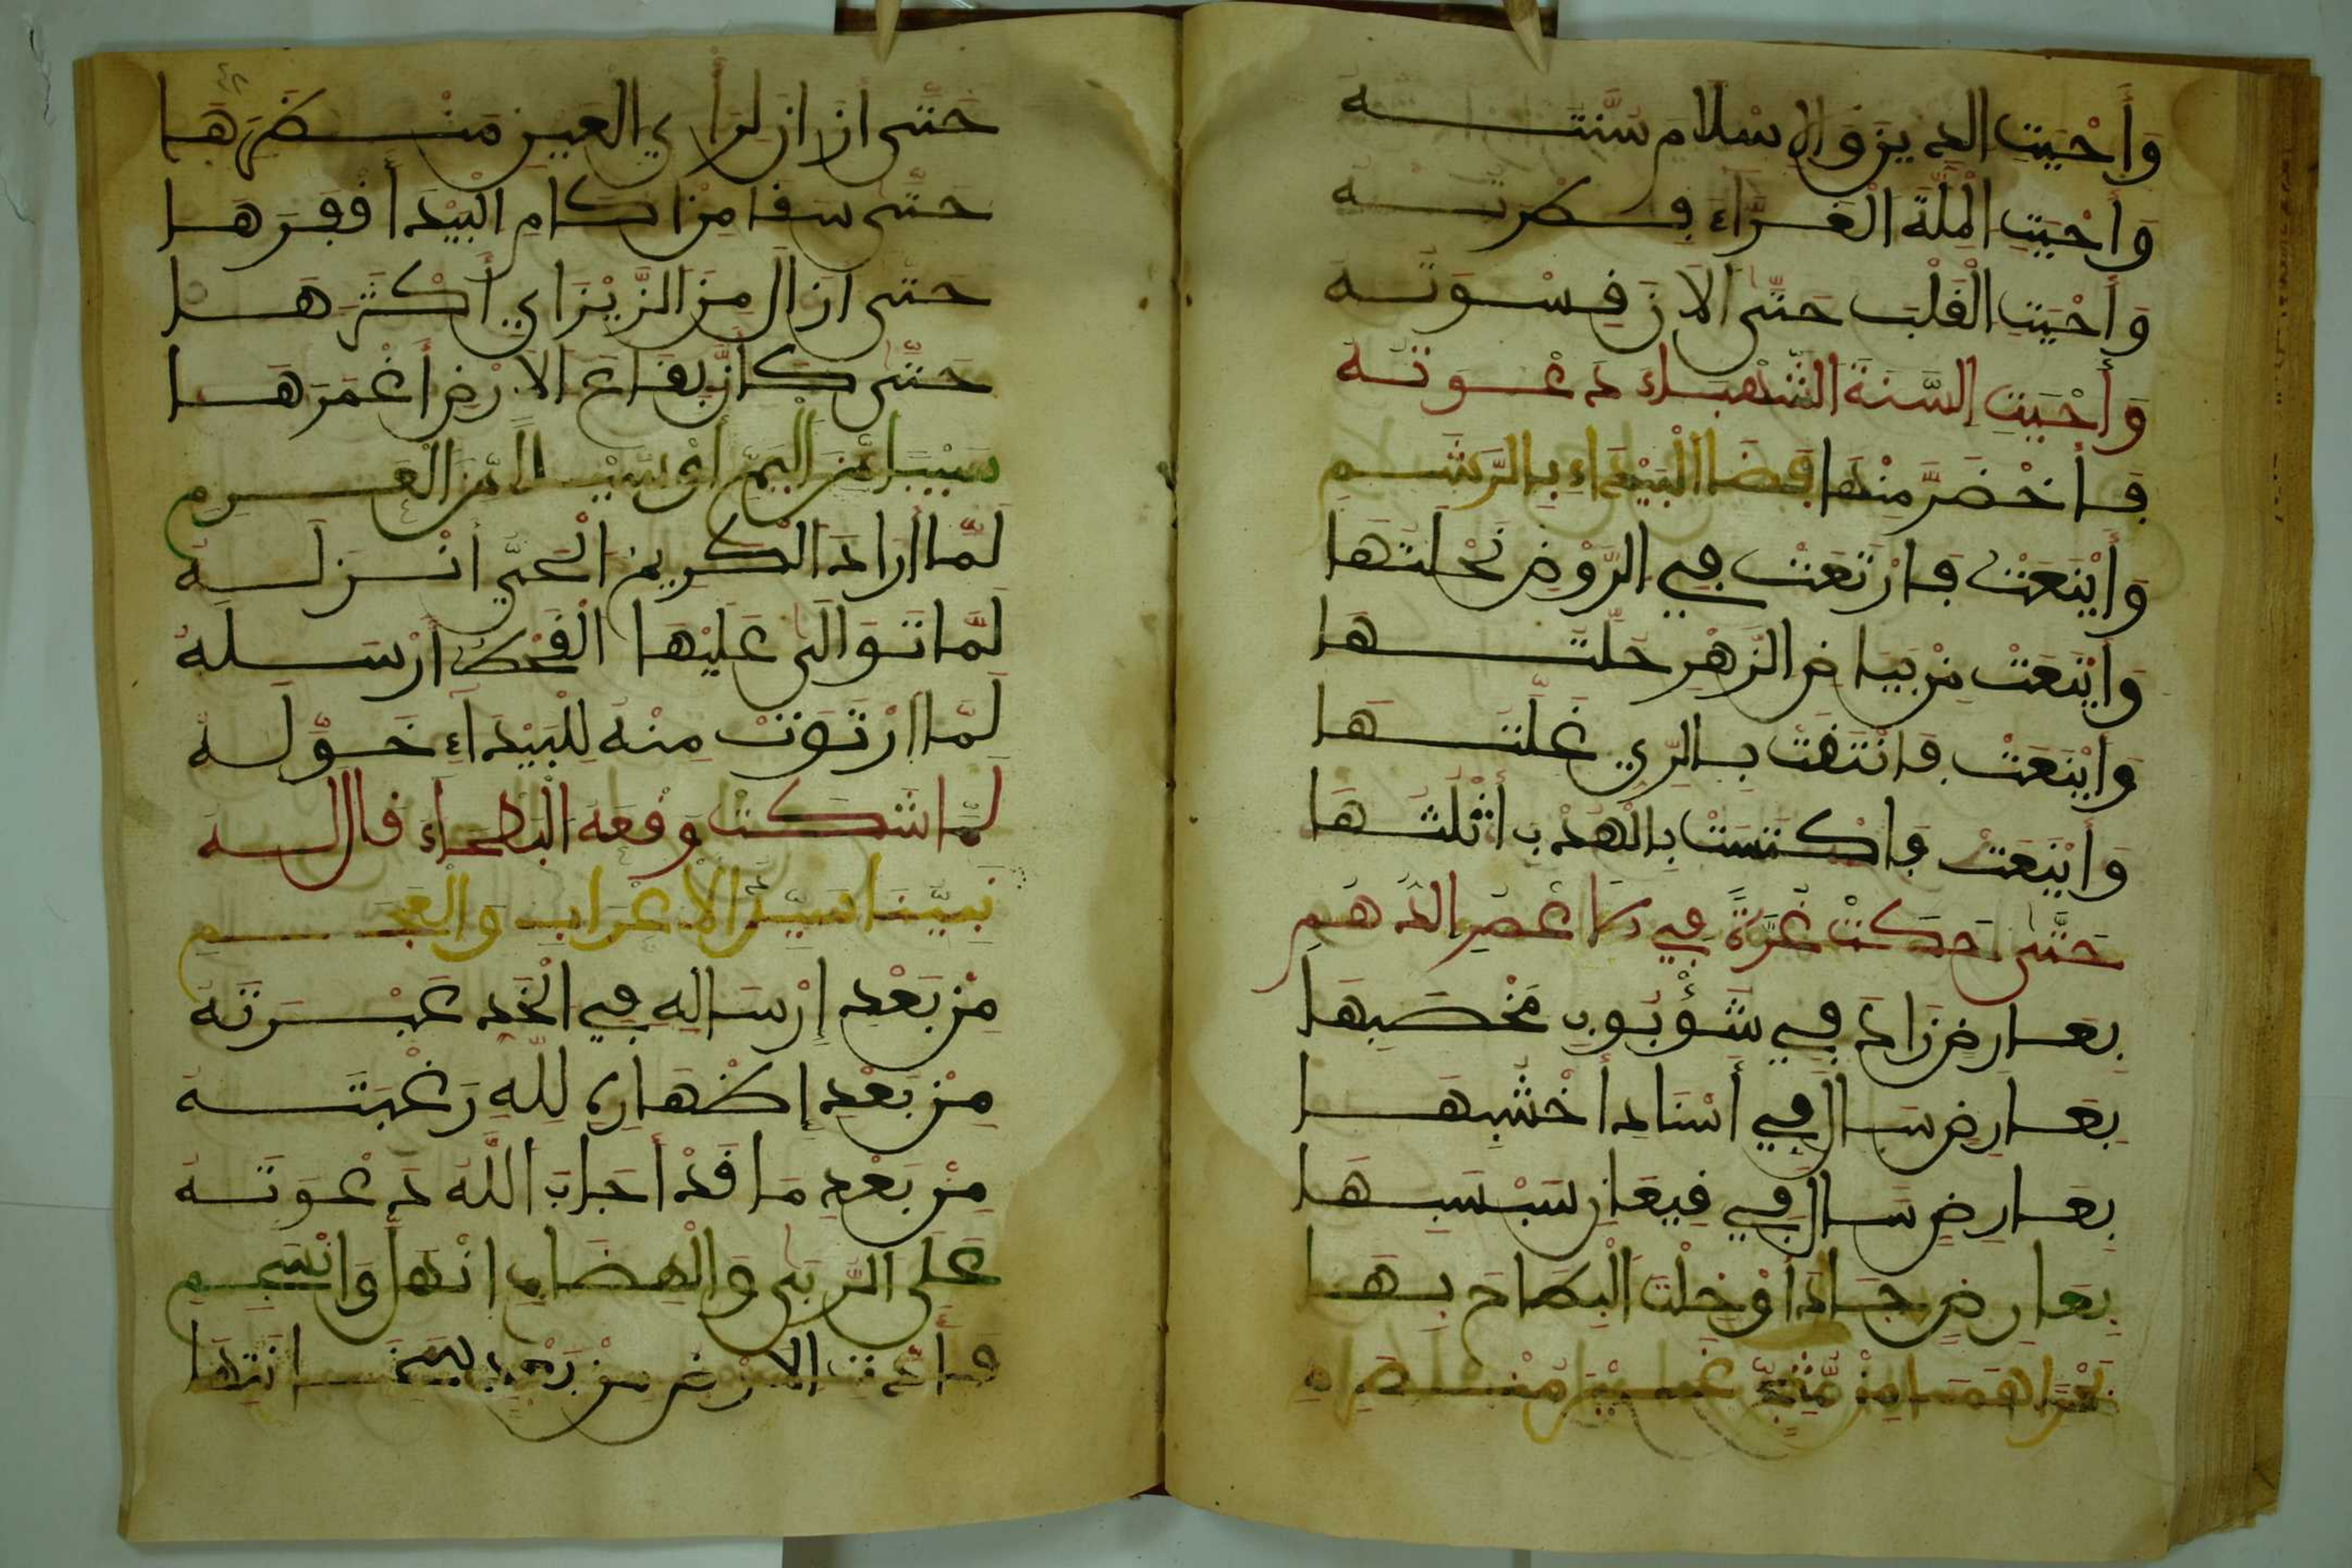 وَأَحْيَتِ الدِّينَ وَالإِسْلَامَ سُنَّتُهُ
وَأَحْيَتِ الْمِلَّةَ الْغَرَّاءَ فِطْرَتُهُ
وَأَحْيَتِ الْقَلْبَ حَتَّى الَانَ قِسْوَتُهُ
وَأَحْيَتِ السَّنَةَ الشَّهْبَاءَ دَعْوَتُهُ
فَاخْضَرَّ مِنْهَا فَضَا الْبَيْدَاءِ بِالرَّشَمِ
وَأَيْنَعَتْ فَارْتَعَتْ فِي الرَّوْضِ نَحْلَتُهَا
وَأَيْنَعَتْ مِنْ بَيَاضِ الزَّهْرِ حُلَّتُهَا
وَأَيْنَعَتْ فَانْتَفَتْ بِالرِّيِّ غُلَّتُهَا
وَأَيْنَعَتْ وَاكْتَسَتْ بِالْهُدْبِ أَثْلَتُهَا
حَتَّى حَكَتْ غُرَّةً فِي الَاعْصُرِ الدُّهُمِ
بِعَارِضٍ زَادَ فِي شُؤْبُوبِ مُخْصِبِهَا
بِعَارِضٍ سَالَ فِي أَسْنَادِ أَخْشَبِهَا
بِعَارِضٍ سَالَ فِي قِيعَانِ سَبْسَبِهَا
بِعَارِضٍ جَادَ أَوْ خِلْتَ الْبِطَاحَ بِهَا
حَتَّى أَنْ ازَانَ لِرَأْيِ الْعَيْنِ مَنْظَرَهَا
حَتَّى سَقَا مِنْ اكَامِ الْبِيدِ أَفْقَرَهَا
حَتَّى أَزَالَ مِنَ الزِّيزَايِ أَكْثَرَهَا
حَتَّى كَأَنَّ بِقَاعَ الَارْضِ أَغْمَرَهَا
سَيْبًا مِّنَ الْيَمِّ أَوْ سَيْلًا مِّنَ الْعَرِمِ
لَمَّا أَرَادَ الْكَرِيمُ الْحَيُّ أَنْزَلَهُ
لَمَّا تَوَالَى عَلَيْهَا الْقَحْطُ أَرْسَلَهُ
لَمَّا ارْتَوَتْ مِنْهُ لِلْبَيْدَاءِ حَوَّلَهُ
لَمَّا شَكَتْ وَقْعَهُ الْبَطْحَاءُ قَالَ لَهُ
نَبِيُّنَا سَيِّدُ الَاعْرَابِ وَالْعَجَمِ
مِنْ بَعْدِ إِرْسَالِهِ فِي الْخَدِّ عَبْرَتَهُ
مِنْ بَعْدِ إِظْهَارِهِ لِلَّهِ رَغْبَتَهُ
مِنْ بَعْدِ مَا قَدْ أَجَابَ اللَّهُ دَعْوَتَهُ
عَلَى الرُّبَى وَالْهِضَابِ انْهَلَّ وَانْسَجِمِ
الَارْضُ مِنْ